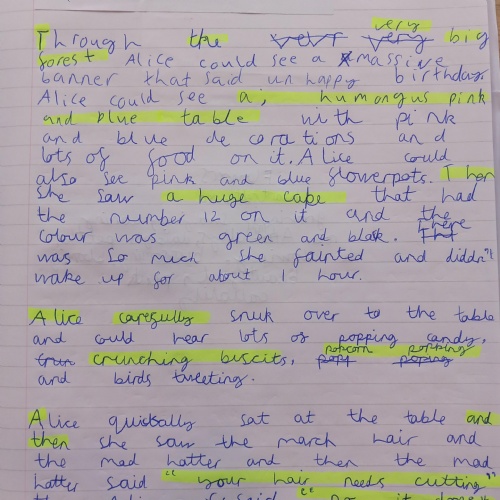 very
Through the vevr very big
forest Alice could see a massive
banner that said unhappy birthday
Alice could see a, humongus pink
and blue table with pink
and blue decorations and
lots of food on it. Alice could
also see pink and blue flowerpots. Then
She saw a huge cake that had
the number 12 on it and the
colour was green and black. There
was so much she fainted and diddn't
wake up for about 1 hour.
Alice carefully snuk over to the table
and could hear lots of popping candy,
crunching biscits, popcorn popping
and birds tweeting.
Alice sat at the table and
then she saw the march hair and
the mad hatter and then the mad
hatter said "your hair needs cutting"